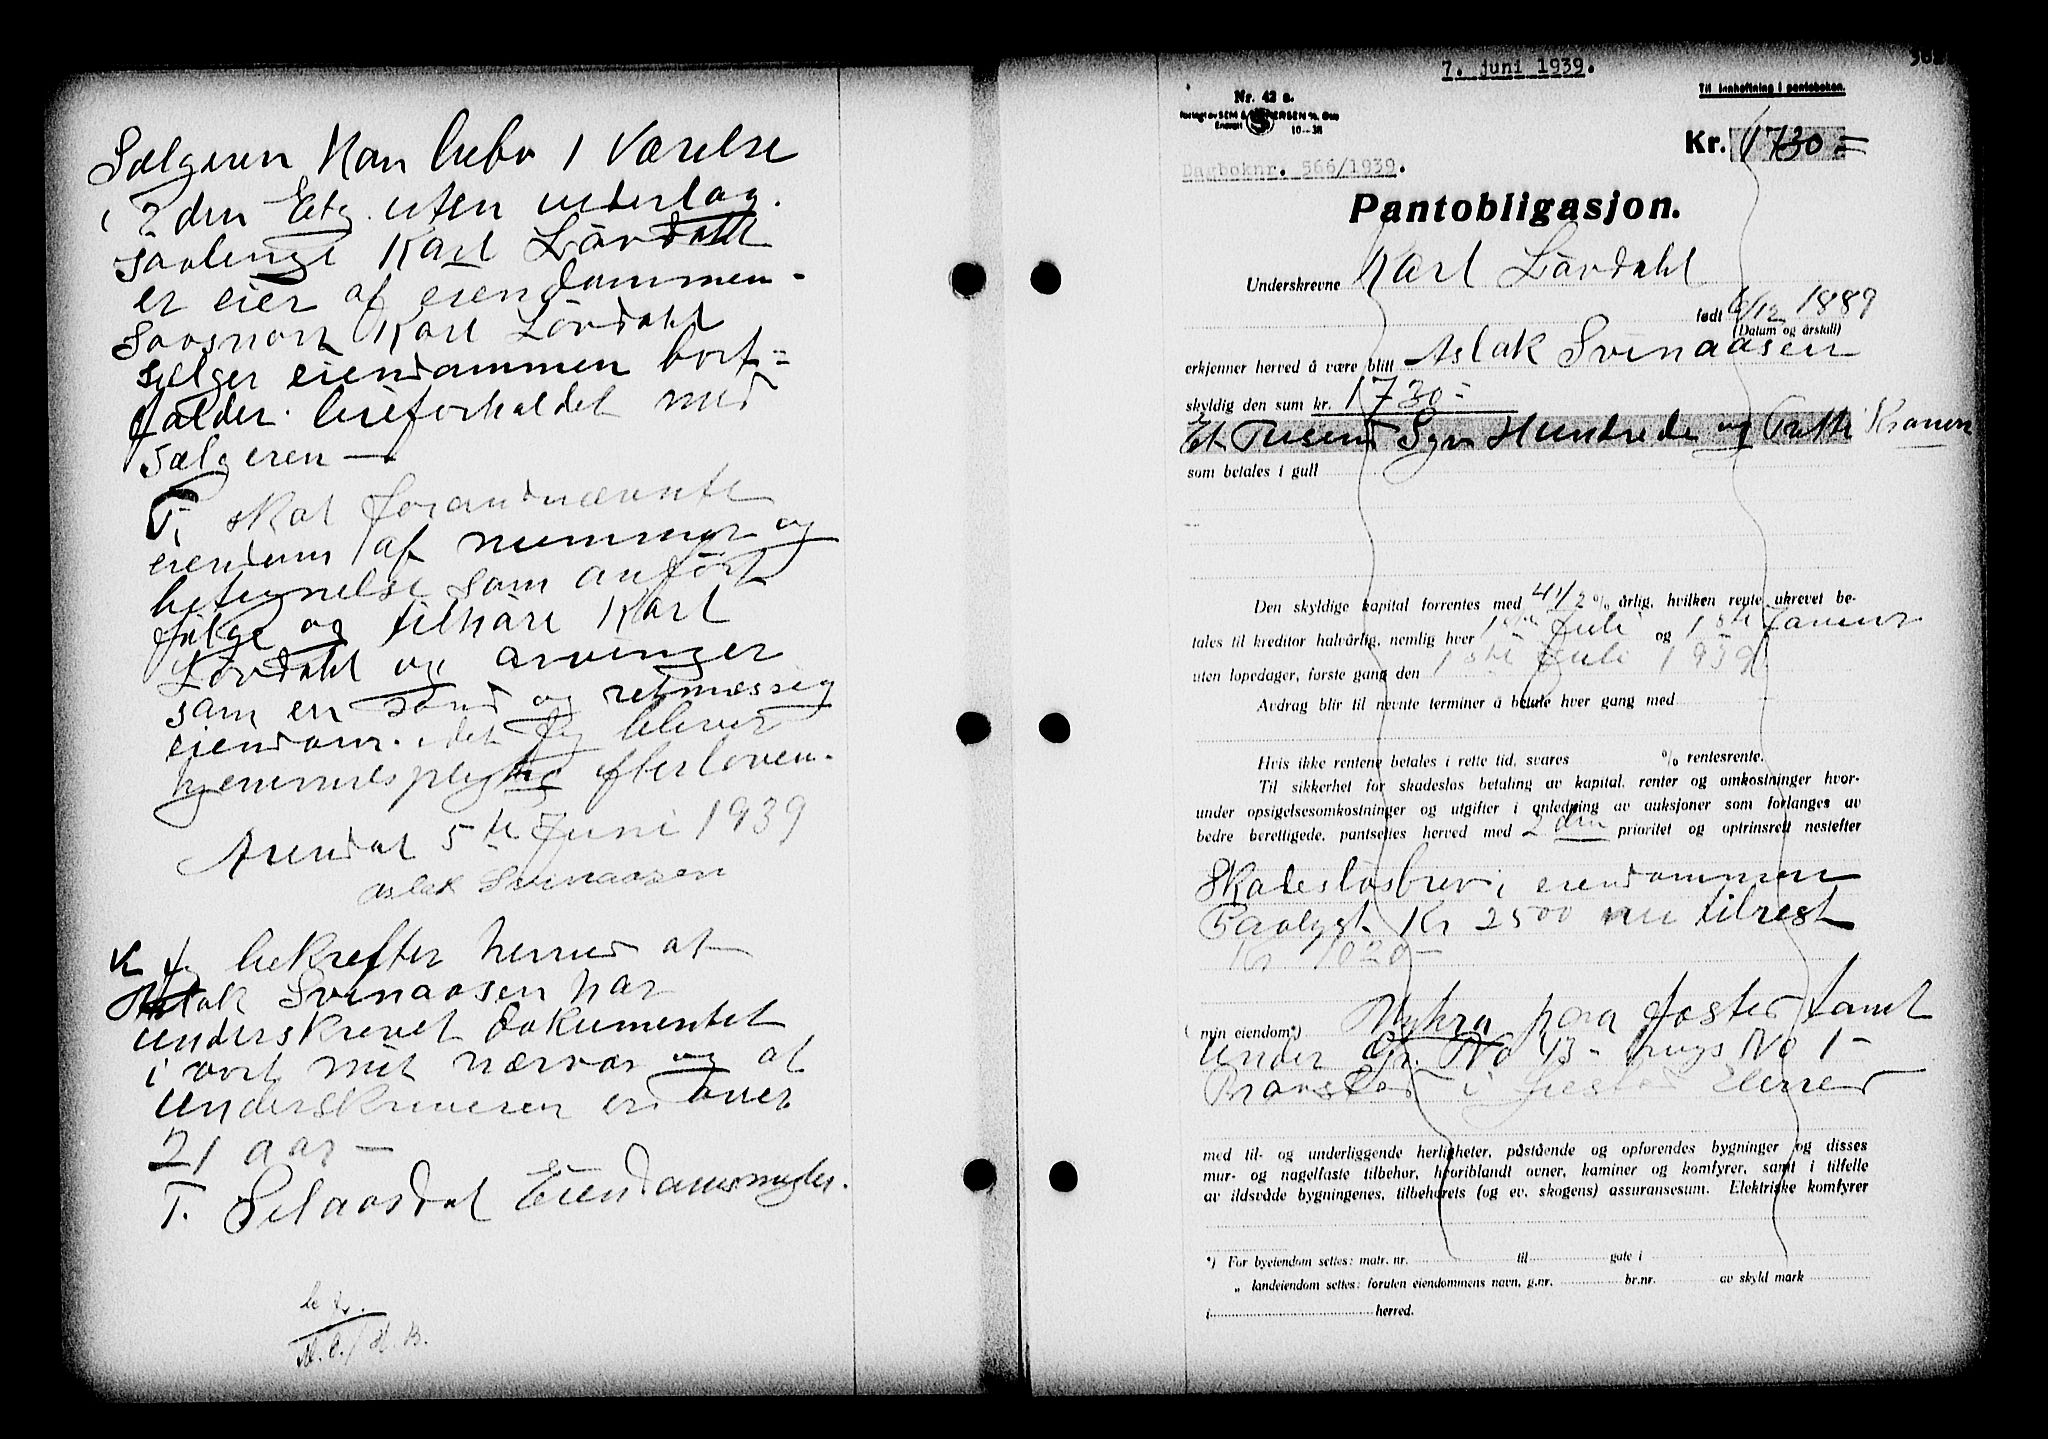 Sælgeren kan bebo 1 Værelse
i 2den Etg. uten vederlag.
saalenge Karl Lövdahl
er eier af eiendommen-
saasnart Karl Lövdahl
sælger eiendommen bort=
falder leieforholdet med
Sælgeren —
Ti skal forandnævnte
eiendom af nummer og
betegnelse som anført
følge og tilhøre Karl
Lövdahl og arvinger
som en sand og retmæssig
eiendom. idet Jeg bliver
hjemmelspligtig efter loven.
Arendal 5te Juni 1939
Aslak Svinaasen
Jeg bekrefter herved at
Aslak Svinaasen har
underskrevet dokumentet
i vort mit nærvær og at
underskriveren er over
21 aar —
T. Selaasdal Eiendomsmegler.
7. juni 1939.
Til innheftning i panteboken.
Nr. 42 a.
10-38
Kr. 1730=
Dagboknr. 566/1939.
Pantobligasjon.
Underskrevne Karl Lövdahl
født 6/12 1889
(Datum og årstall)
erkjenner herved å være blitt Aslak Svinaasen
skyldig den sum kr. 1730-
Et Tusend Syv Hundrede og Tretti Kroner
som betales i gull
Den skyldige kapital forrentes med 4 1/2 % årlig, hvilken rente ukrevet be-
tales til kreditor halvårlig, nemlig hver 1ste Juli og 1ste Januar
uten løpedager, første gang den 1ste Juli 1939
Avdrag blir til nevnte terminer å betale hver gang med
Hvis ikke rentene betales i rette tid, svares % rentesrente.
Til sikkerhet for skadesløs betaling av kapital, renter og omkostninger hvor-
under opsigelsesomkostninger og utgifter i anledning av auksjoner som forlanges av
bedre berettigede, pantsettes herved med 2den prioritet og optrinsrett nestefter
Skadesløsbrev i eiendommen
Paalyst Kr 2500 nu tilrest
Kr 1020-
(min eiendom*) Nykra paa Jostedamt
under Gr. No 43 - brugs No 1 -
Braastad i Øiestad Herred
med til- og underliggende herligheter, påstående og opførendes bygninger og disses
mur- og nagelfaste tilbehør, hvoriblandt ovner, kaminer og komfyrer, samt i tilfelle
av ildsvåde bygningenes, tilbehørets (og ev. skogens) assuransesum. Elektriske komfyrer
*) For byeiendom settes: matr. nr. til gate i
„ landeiendom settes: foruten eiendommens navn, g.nr. br.nr. av skyld mark
i herred.